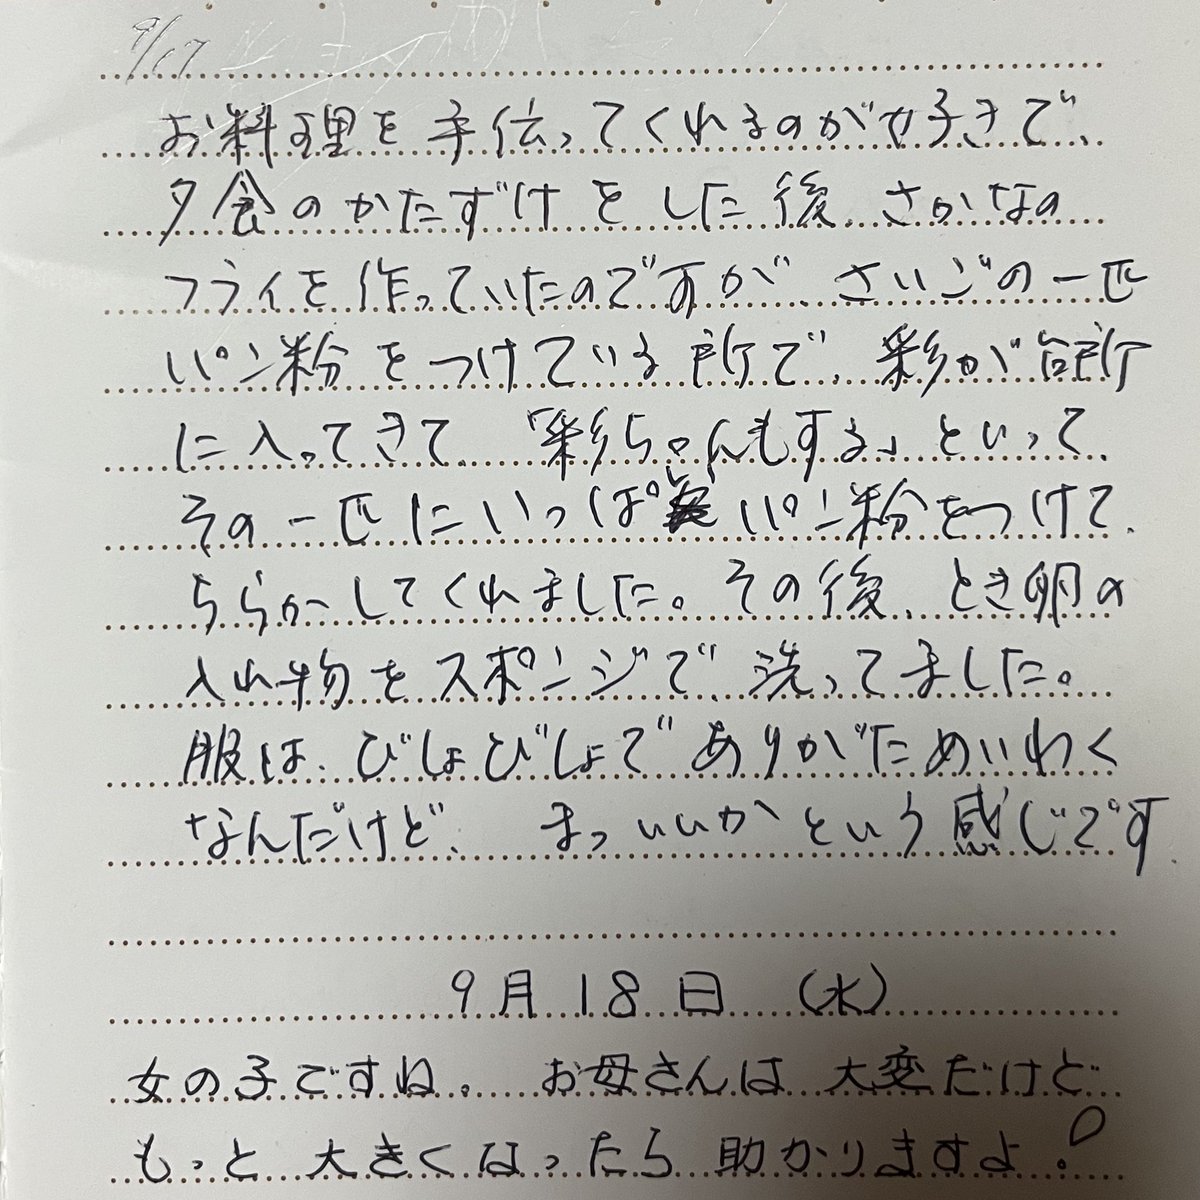 9/17
お料理を手伝ってくれるのが好きで、
夕食のかたずけをした後、さかなの
フライを作っていたのですが、さいごの一匹
パン粉をつけている所で、彩が台所
に入ってきて、「彩ちゃんもする」といって、
その一匹にいっぱいパン粉をつけて、
ちらかしてくれました。その後、とき卵の
入れ物をスポンジで、洗ってました。
服は、びしょびしょでありがためいわく
なんだけど、まっいいかという感じです
9月18日(水)
女の子ですね。お母さんは大変だけど
もっと大きくなったら助かりますよ!